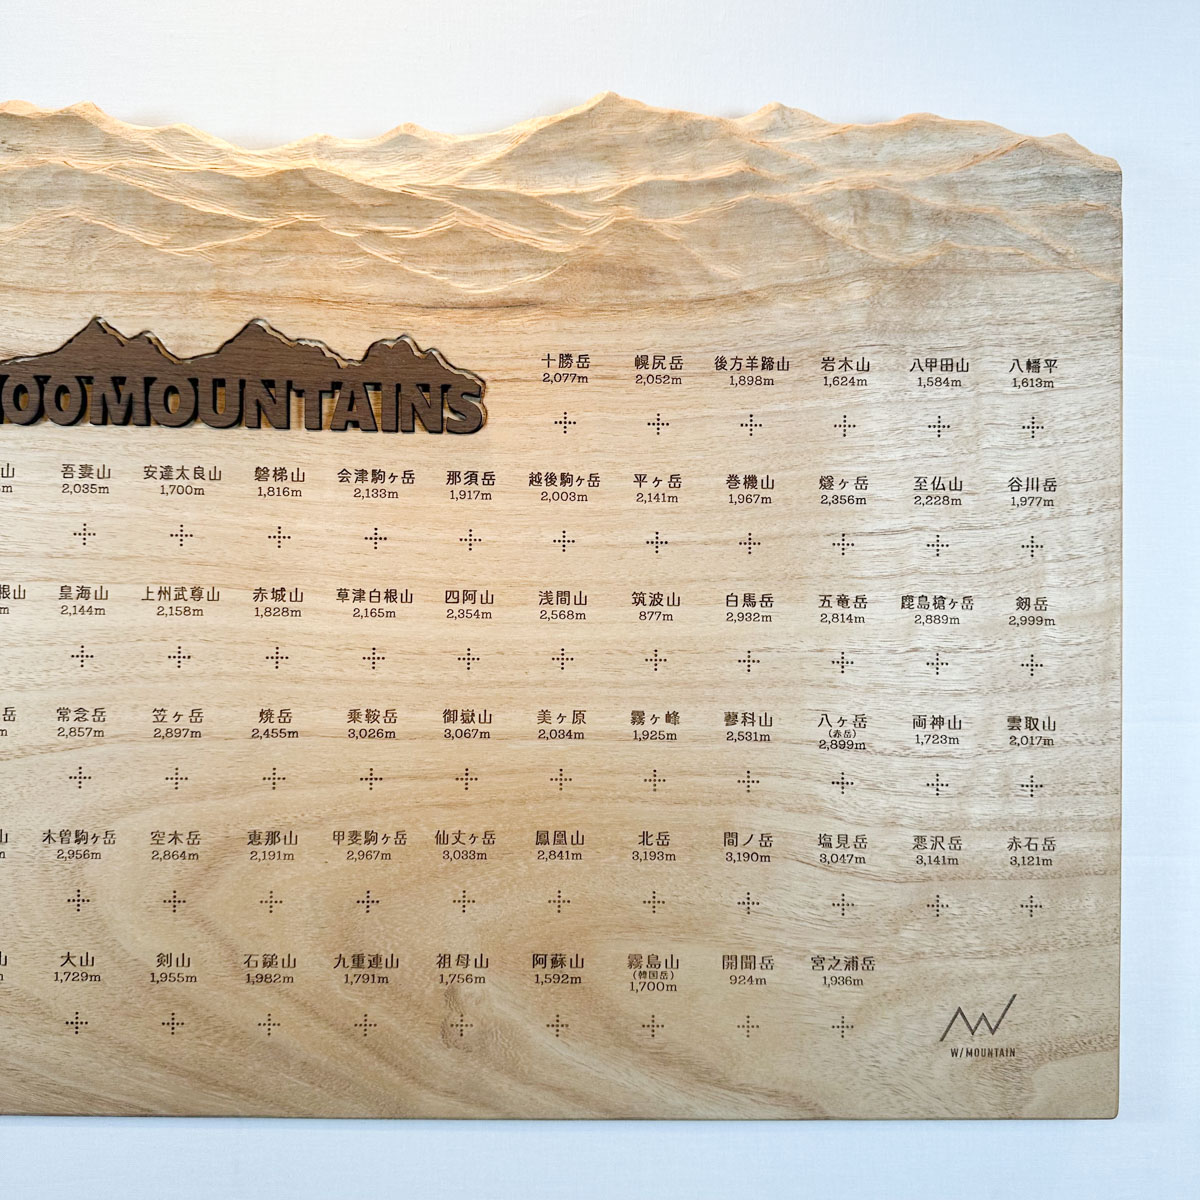 OOMOUNTAINS
十勝岳 幌尻岳 後方羊蹄山 岩木山 八甲田山 八幡平
2,077m 2,052m 1,898m 1,624m 1,584m 1,613m
山 吾妻山 安達太良山 磐梯山 会津駒ヶ岳 那須岳 越後駒ヶ岳 平ヶ岳 巻機山 燧ヶ岳 至仏山 谷川岳
m 2,035m 1,700m 1,816m 2,133m 1,917m 2,003m 2,141m 1,967m 2,356m 2,228m 1,977m
根山 皇海山 上州武尊山 赤城山 草津白根山 四阿山 浅間山 筑波山 白馬岳 五竜岳 鹿島槍ヶ岳 剱岳
m 2,144m 2,158m 1,828m 2,165m 2,354m 2,568m 877m 2,932m 2,814m 2,889m 2,999m
岳 常念岳 笠ヶ岳 焼岳 乗鞍岳 御嶽山 美ヶ原 霧ヶ峰 蓼科山 八ヶ岳 両神山 雲取山
(赤岳)
m 2,857m 2,897m 2,455m 3,026m 3,067m 2,034m 1,925m 2,531m 2,899m 1,723m 2,017m
山 木曽駒ヶ岳 空木岳 恵那山 甲斐駒ヶ岳 仙丈ヶ岳 鳳凰山 北岳 間ノ岳 塩見岳 悪沢岳 赤石岳
m 2,956m 2,864m 2,191m 2,967m 3,033m 2,841m 3,193m 3,190m 3,047m 3,141m 3,121m
山 大山 剣山 石鎚山 九重連山 祖母山 阿蘇山 霧島山 開聞岳 宮之浦岳
(韓国岳)
m 1,729m 1,955m 1,982m 1,791m 1,756m 1,592m 1,700m 924m 1,936m
W/MOUNTAIN